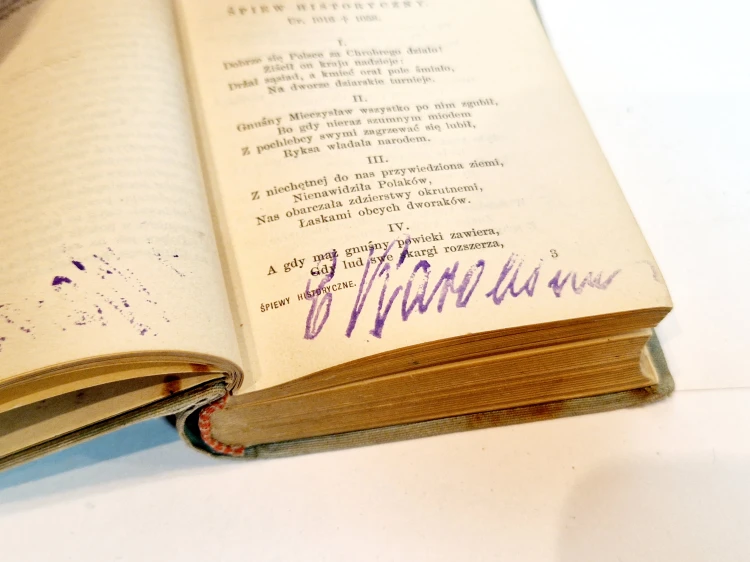 ŚPIEW HISTORYCZNY.
Ur. 1018 † 1058.
I.
Dobrze się Polsce za Chrobrego działo!
Ziścił on kraju nadzieje:
Drżał sąsiad, a kmieć orał pole śmiało,
Na dworze dziarskie turnieje.
II.
Gnuśny Mieczysław wszystko po nim zgubił,
Bo gdy nieraz szumnym miodem
Z pochlebcy swymi zagrzewać się lubił,
Ryksa władała narodem.
III.
Z niechętnej do nas przywiedziona ziemi,
Nienawidziła Polaków,
Nas obarczała zdzierstwy okrutnemi,
Łaskami obcych dworaków.
IV.
A gdy mąż gnuśny powieki zawiera,
Gdy lud swe skargi rozszerza,
ŚPIEWY HISTORYCZNE. 3